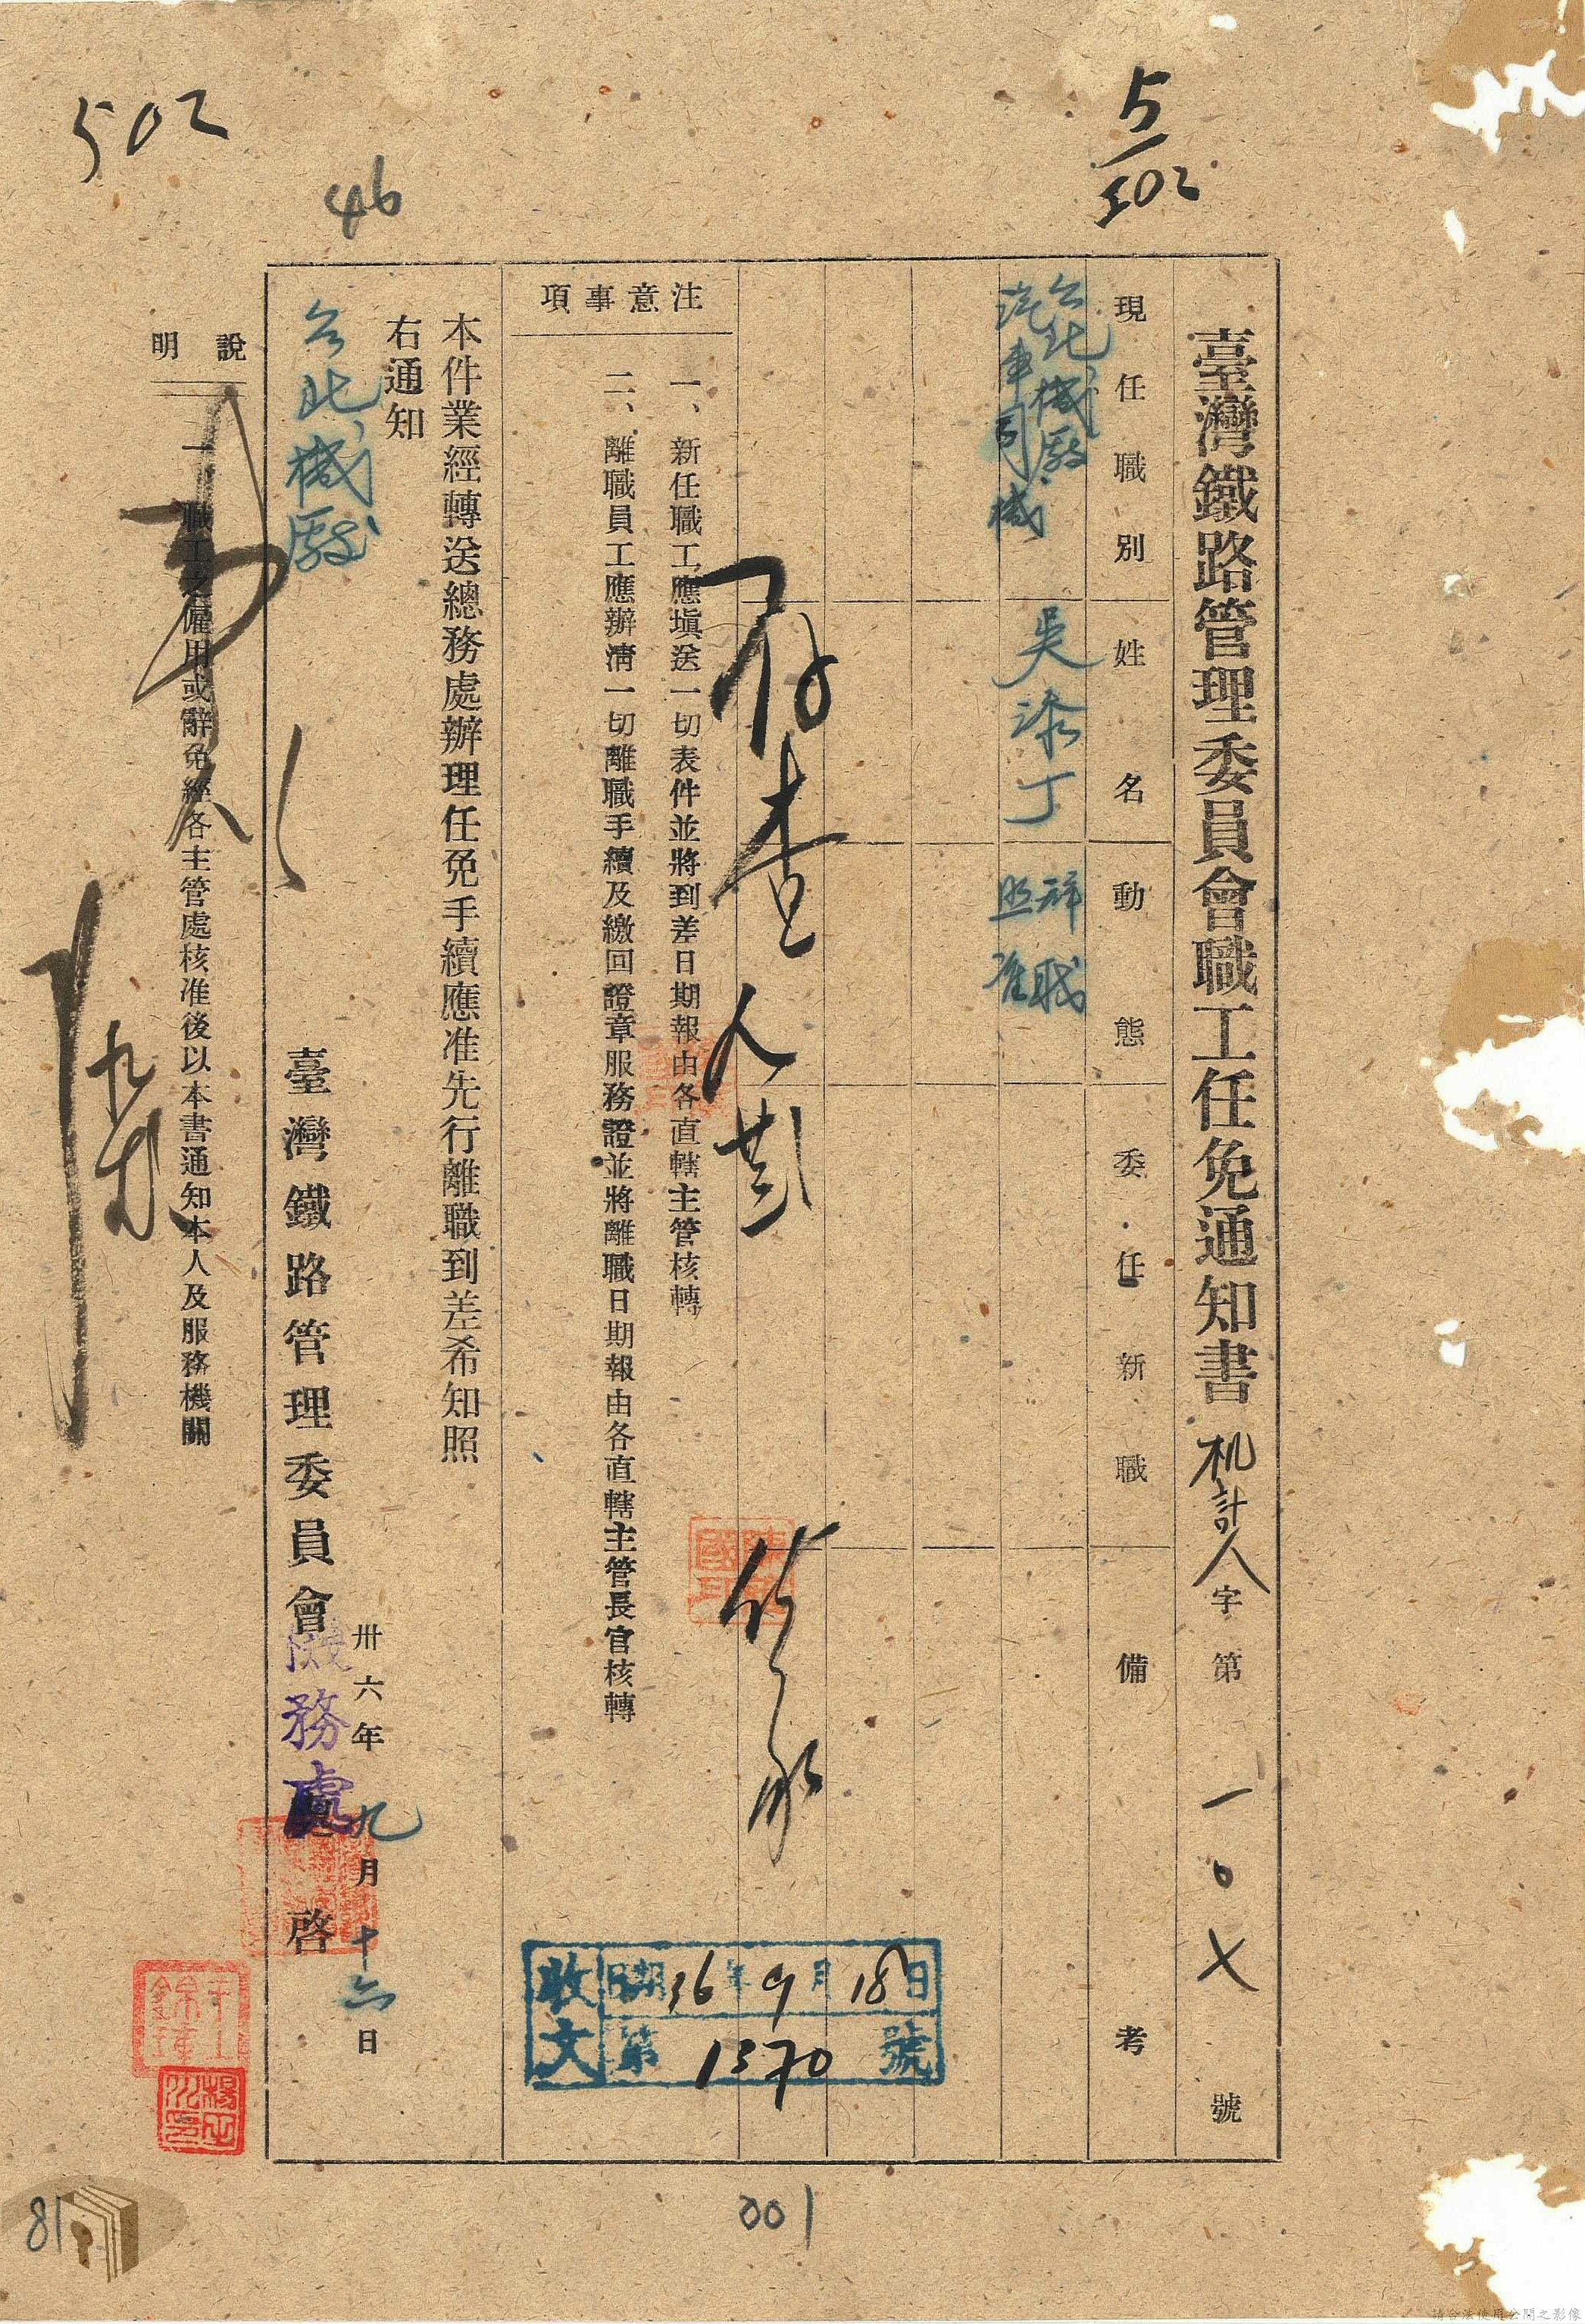 502
46
5/502
臺灣鐵路管理委員會職工任免通知書 机計人字第一〇七號
現任職別 姓名 動態 委任新職 備考
台北機廠
汽車司機
吳添丁
辞職
照准
存查
注意事項
一、新任職工應塡送一切表件並將到差日期報由各直轄主管核轉
二、離職員工應辦淸一切離職手續及繳回證章服務證並將離職日期報由各直轄主管長官核轉
本件業經轉送總務處辦理任免手續應准先行離職到差希知照
右通知
台北機廠
臺灣鐵路管理委員會 務處 啓
卅六年九月十六日
說明
一、職工之僱用或辭免經各主管處核准後以本書通知本人及服務機關
收文
日期36年9月18日
第1370號
81
001
請合法使用公開之影像